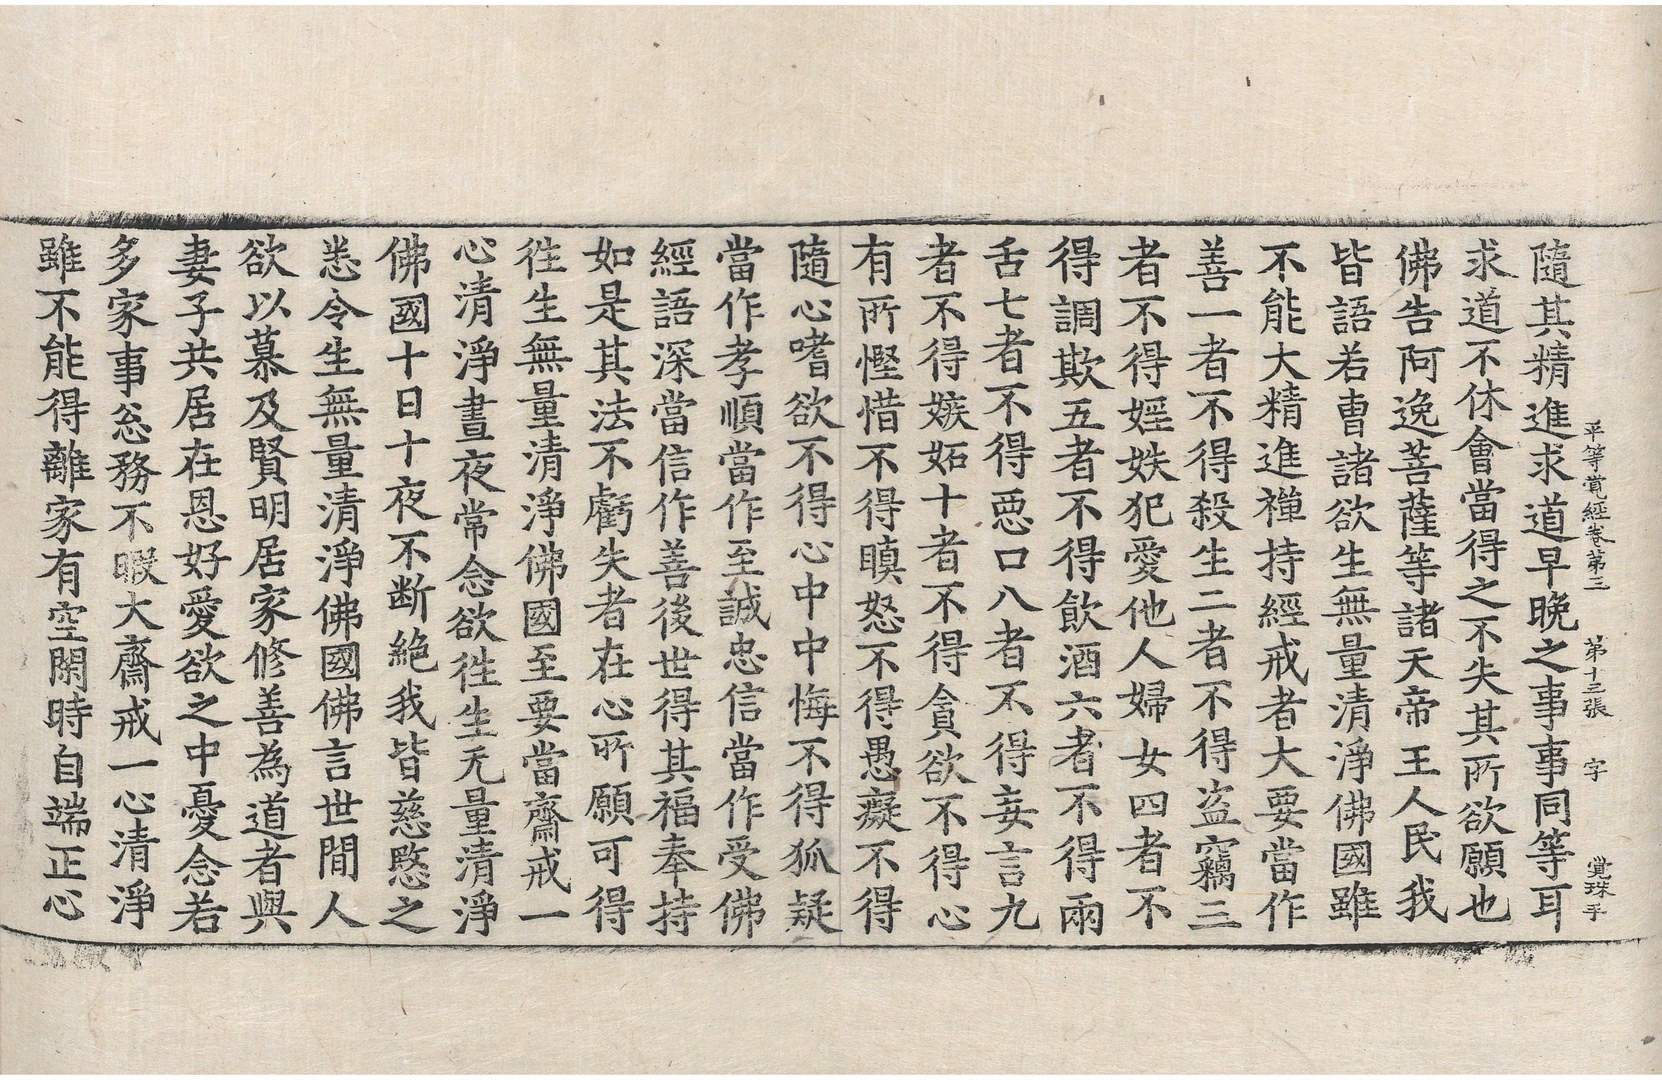 平等覺經卷第三 第十三張 字 覺珠手
隨其精進求道早晩之事事同等耳
求道不休會當得之不失其所欲願也
佛告阿逸菩薩等諸天帝王人民我
皆語若曹諸欲生無量清淨佛國雖
不能大精進禪持經戒者大要當作
善一者不得殺生二者不得盗竊三
者不得婬妷犯愛他人婦女四者不
得調欺五者不得飲酒六者不得兩
舌七者不得惡口八者不得妄言九
者不得嫉妬十者不得貪欲不得心
有所慳惜不得瞋怒不得愚癡不得
隨心嗜欲不得心中中悔不得狐疑
當作孝順當作至誠忠信當作受佛
經語深當信作善後世得其福奉持
如是其法不虧失者在心所願可得
徃生無量清淨佛國至要當齋戒一
心清淨晝夜常念欲徃生无量清淨
佛國十日十夜不断絶我皆慈愍之
悉令生無量清淨佛國佛言世間人
欲以慕及賢明居家修善為道者與
妻子共居在恩好愛欲之中憂念若
多家事忩務不暇大齋戒一心清淨
雖不能得離家有空閑時自端正心